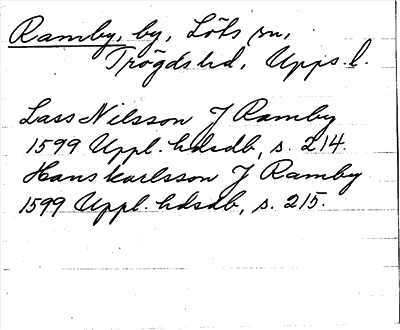 Ramby, by, Löts sn,
Trögds hd, Upps. l.
Lass Nilsson J Ramby
1599 Uppl. hdsdb, s. 214.
Hans Karlsson J Ramby
1599 Uppl. hdsdb, s. 215.